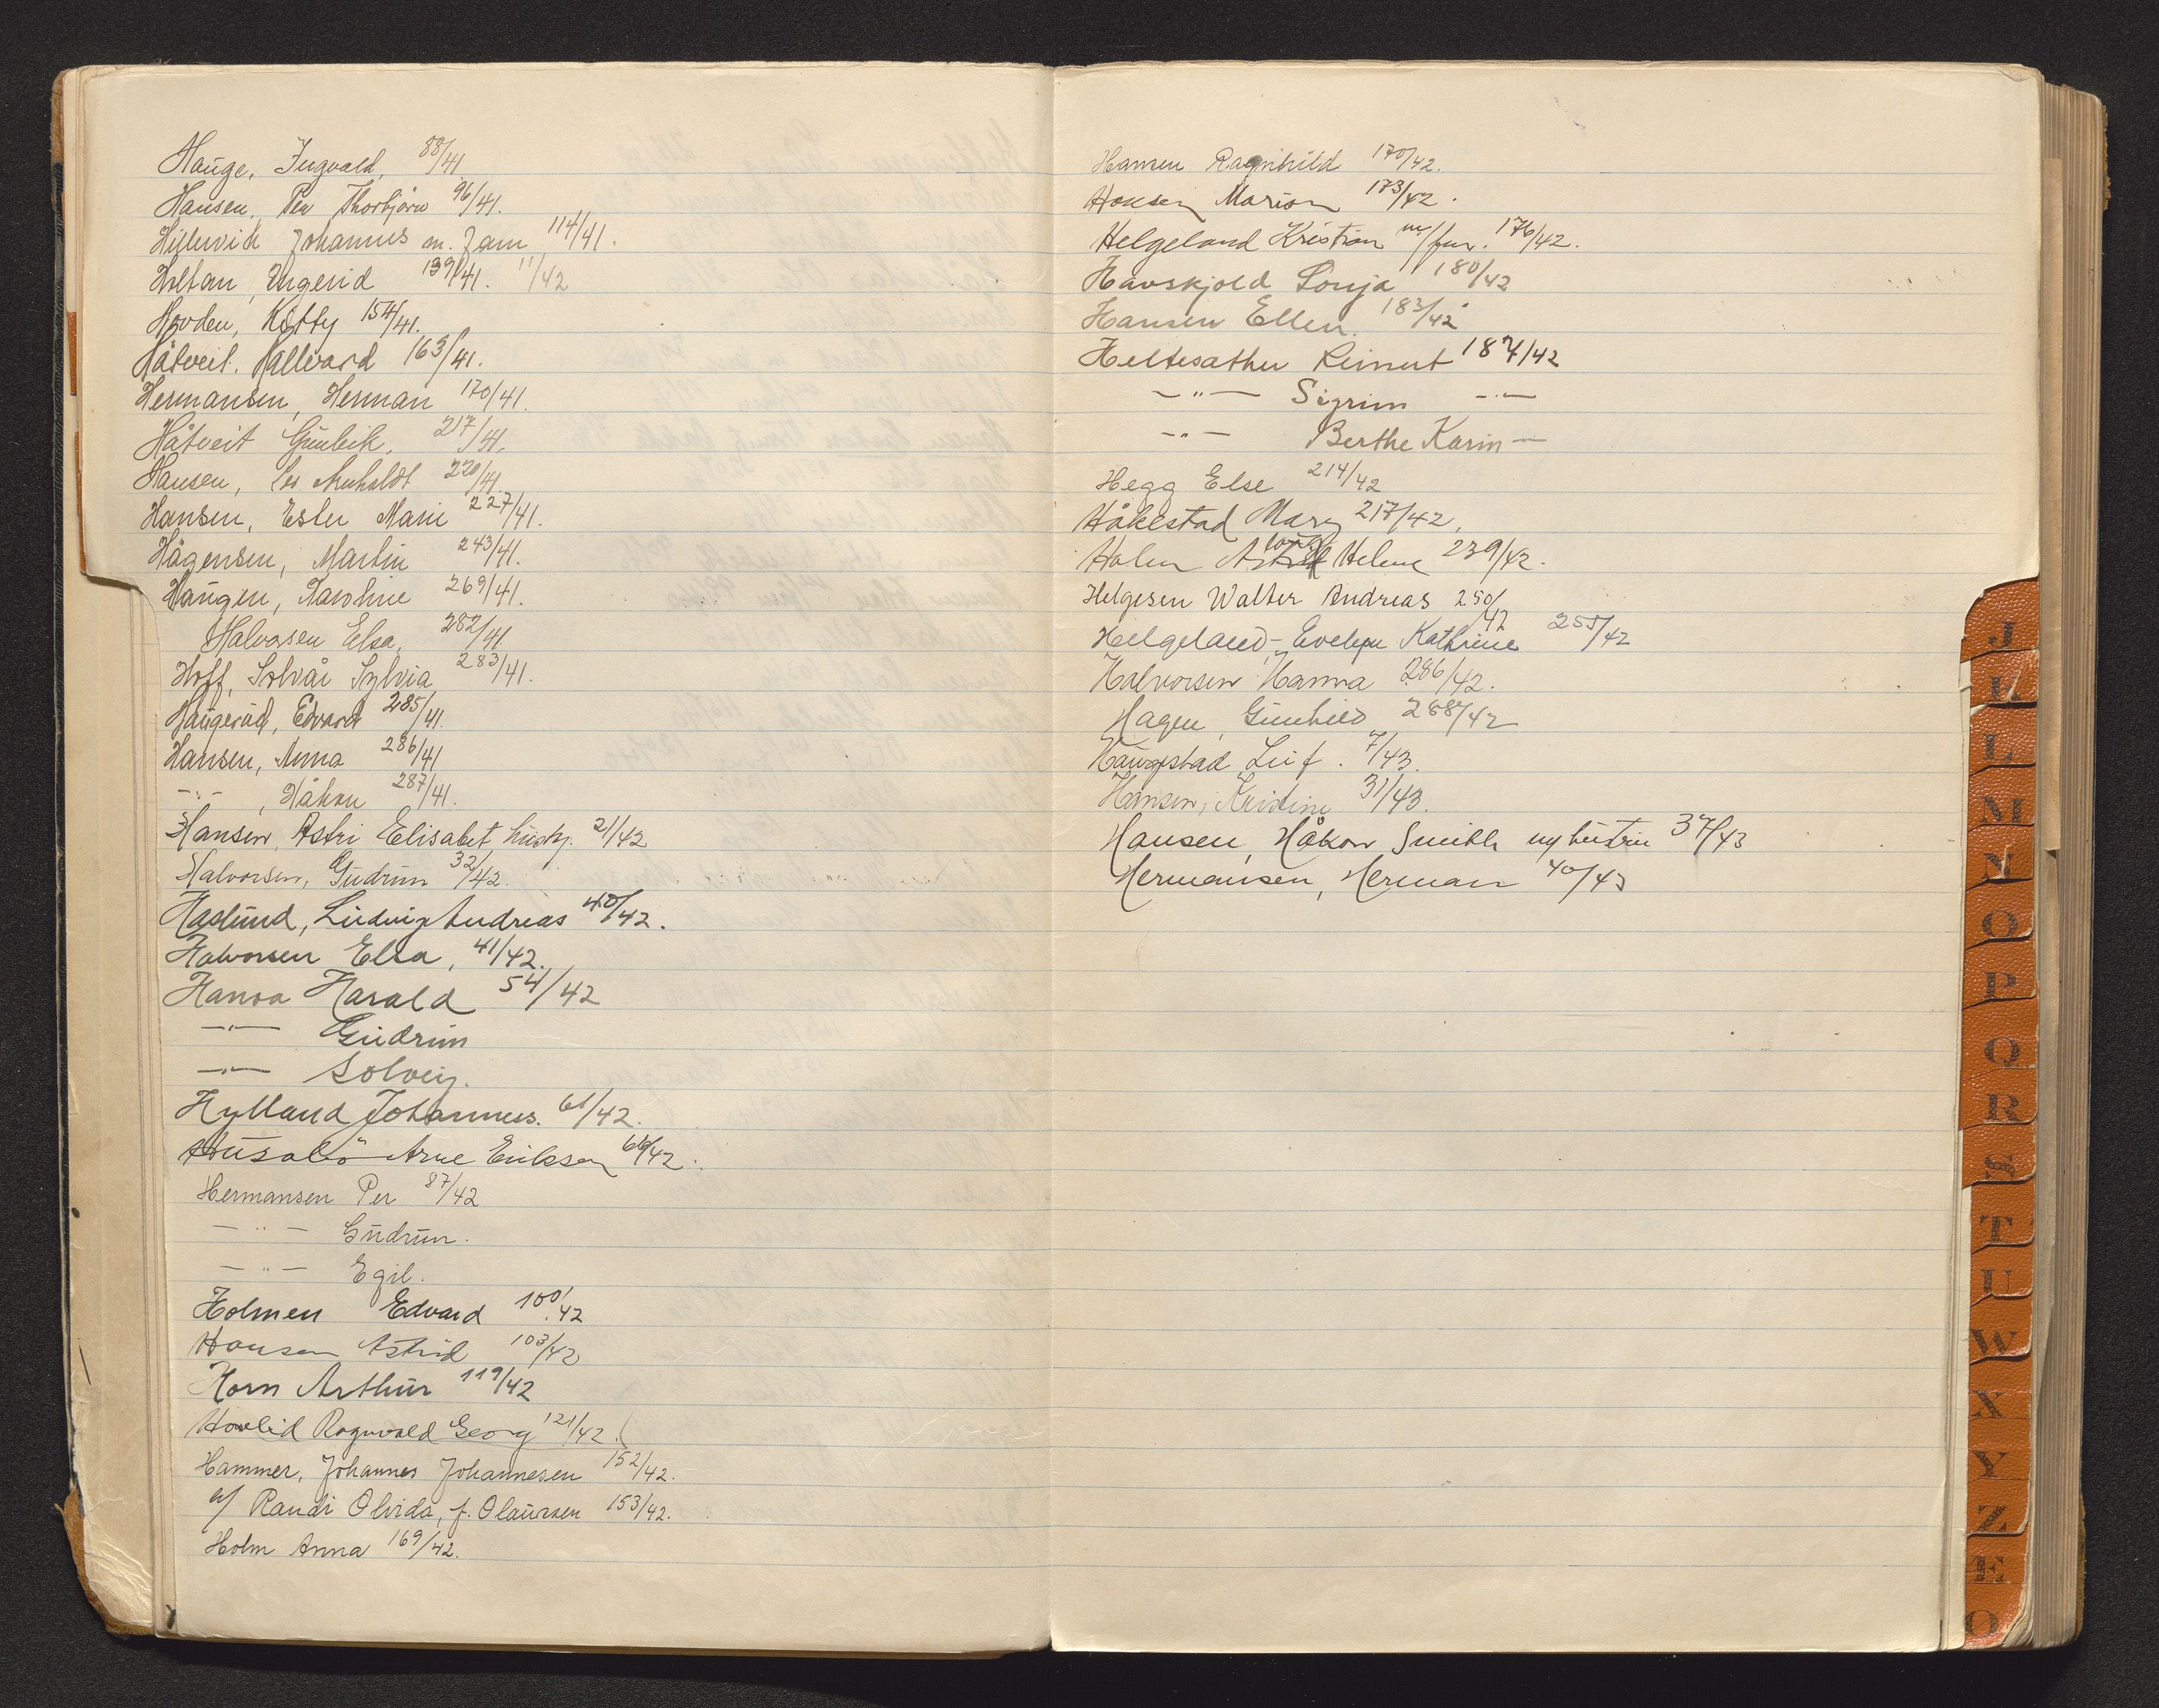 Hauge, Ingvald, 88/41
Hansen, Per Thorbjørn 96/41.
Hillervik Johannes m. fam 114/41.
Holtan, Ingerid 139/41. 11/42
Hovden, Kitty 154/41.
Håtveit. Hallvard 163/41.
Hermansen, Herman 170/41.
Håtveit Gunleik, 217/41.
Hansen, 220/41.
Hansen, Ester Marie 227/41.
Hågensen, Martin 243/41.
Haugen, Karoline 269/41.
Halvorsen Elsa, 282/41
Hoff, Solvår Sylvia 283/41.
Haugerud, Edvard 285/41.
Hansen, Anna 286/41
-"-, Håkon 287/41.
Hansen, Astri Elisabet, 21/42
Halvorsen, Gudrun 32/42.
Haslund, Ludvig Andreas 40/42.
Halvorsen Elsa, 41/42.
Hanoa Harald 54/42
-"- Gudrun
-"- Solveig.
Hylland Johannes. 61/42.
Husabø Arne Eriksen 66/42.
Hermansen Per 87/42
-"- Gudrun.
-"- Egil.
Holmen Edvard 100/42
Hansen Astrid 103/42
Horn Arthur 119/42
Hovlid Ragnvald Georg 121/42.
Hammer, Johannes Johannesen 152/42.
o/ Randi Olvida, f. Olaursen 153/42.
Holm Anna 169/42.
Hansen Ragnhild 170/42.
Hansen Marion 173/42.
Helgeland Kristian m/fru. 176/42.
Havskjold Sonja 180/42
Hansen Ellen. 183/42
Heltesather Reinert 187/42
-"- Sigrun -"-
-"- Berthe Karin -
Hegg Else 214/42
Håkestad Mary 217/42.
Holen Helene 239/42.
Helgesen Walter Andreas 250/42
Helgeland, Evelyn Kathrine 255/42
Halvorsen Hanna 286/42.
Hagen, Gunhild 288/42
Haugstad Leif. 7/43.
Hansen, Kristine 31/43.
Hansen, Håkon Smith ny hustru 37/43
Hermansen, Herman 40/43
I
K
L
M
N
O
P
Q
R
S
T
U
W
X
Y
Z
Æ
O